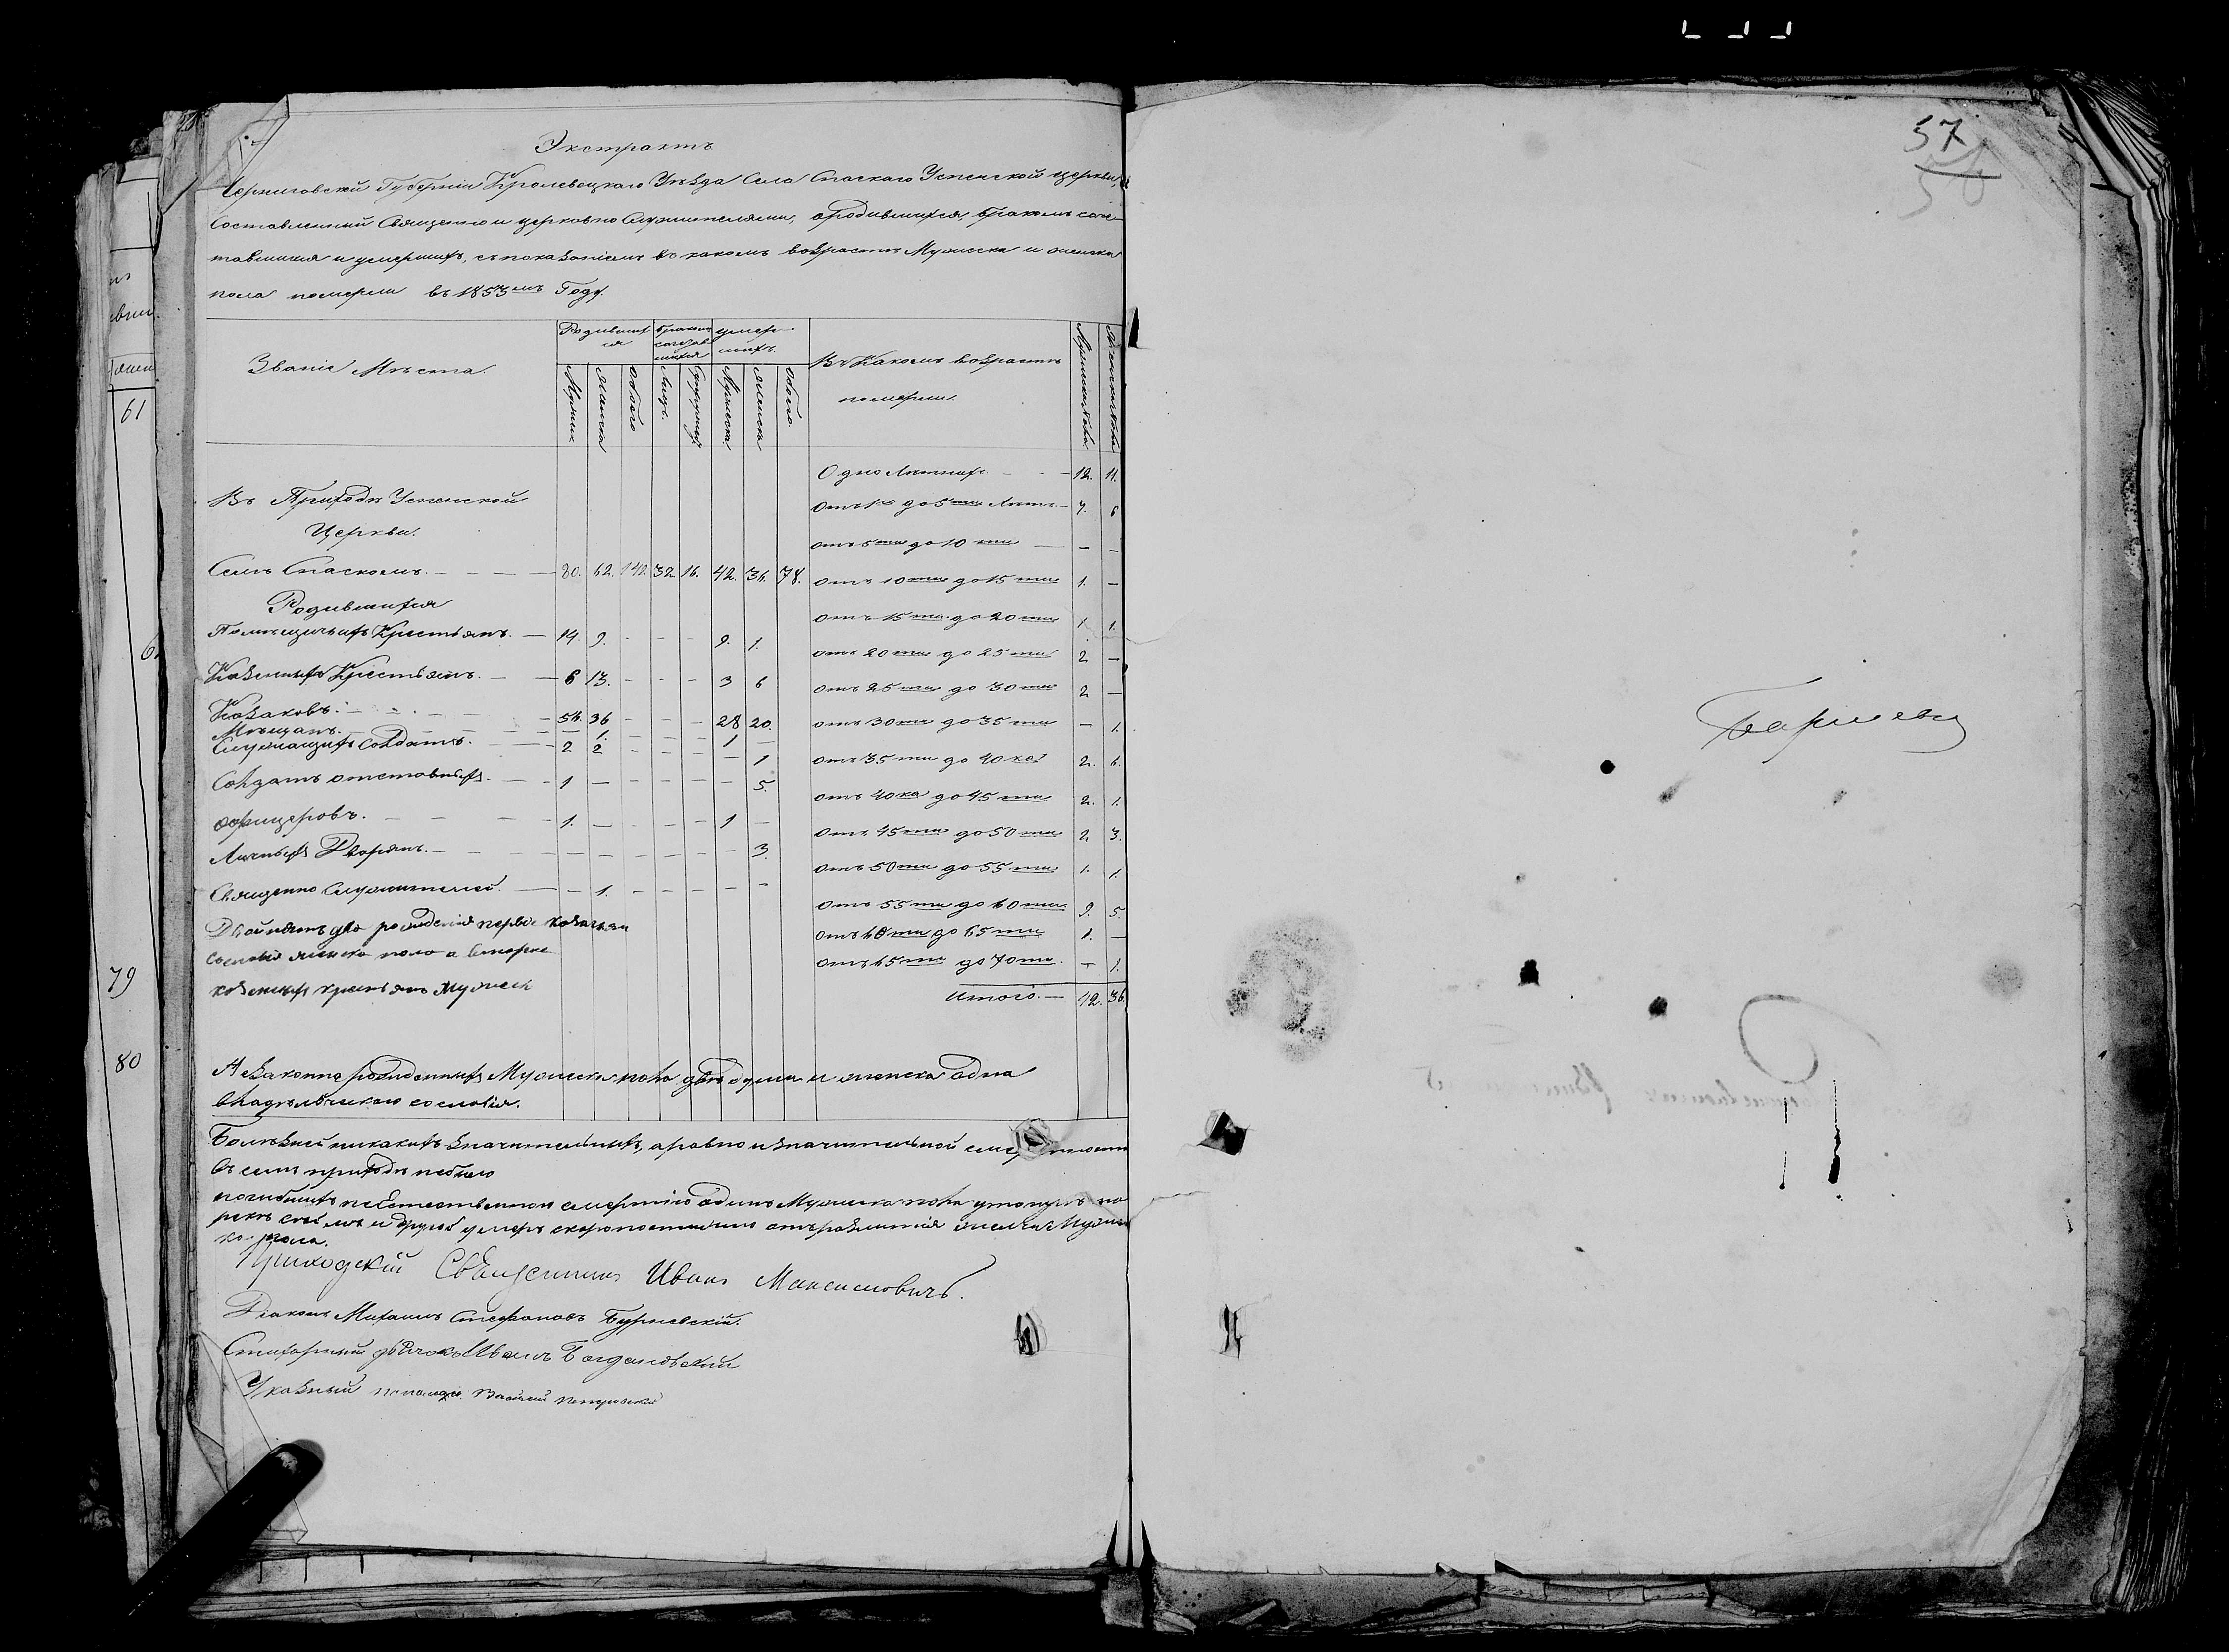 Экстрактъ
Черниговской Губерніи Кролевецкаго Уѣзда Села Спаскаго Успенской церкви,
Составленный Священно и церковно Служителями, о родившихся, бракомъ соче-
тавшихся и умершихъ, съ показаніемъ въ какомъ возрастѣ Мужеска и женска
пола померли въ 1853мъ Году.
Званіе Мѣста.
Родившихся
Бракомъ
умершихъ.
Въ Какомъ возрастѣ померли.
Женска
Обоего
Лицъ.
Мужеска
Женска
Обоего.
Одно Лѣтнихъ 12. 11.
Въ Приходѣ Успенской
Церкви.
отъ 1го до 5ти Лѣтъ 7. 6
отъ 5ти до 10ти — —
Селѣ Спаскомъ. 80. 62. 142. 32. 16. 42. 36. 78.
отъ 10ти до 15ти 1. —
Родившихся
отъ 15ти до 20ти 1 1.
Помѣщичьихъ Крестьянъ. 14. 9. - - - 9. 1.
отъ 20ти до 25ти 2 —
Казенныхъ Крестьянъ. 6 13. - - - 3 6
отъ 25ти до 30ти 2 —
Козаковъ. 56. 36 - - - 28 20.
отъ 30ти до 35ти — 1.
Мѣщанъ. — 1. - - - 1 —
Служащихъ Солдатъ. 2 2 - - - — 1
отъ 35ти до 40ка 2. 6.
Солдатъ отставныхъ. 1 — - - - — 5.
отъ 40ка до 45ти 2. 1.
офицеровъ. 1. — - - - 1 —
отъ 45ти до 50ти 2 3.
Личныхъ Дворянъ. — — - - - — 3.
отъ 50ти до 55ти 1. 1.
Священно Служителей. — 1. - - - — —
отъ 55ти до 60ти 9. 5.
отъ 60ти до 65ти 1. —
отъ 65ти до 70ти. — 1.
Итого. 42. 36.
Двойнятъ два рожденія первое
сословія женска пола а второе
казенныхъ крестьянъ Мужеск
Незаконно рожденныхъ Мужеска пола двѣ души и женска одна
владѣльческаго сословія.
Болѣзней никакихъ значительныхъ, а равно и значительной смертности
въ семъ приходѣ небыло
погибшихъ неестественною смертію одинъ Мужеска пола утонулъ
и другой умеръ скоропостижно отъ
пола.
Приходскій Священникъ Иванъ Максимовичъ.
Діаконъ Михаилъ Стефановъ Бурневскій.
Стихарный дьячокъ Иванъ Богдановский
Указный пономарь Василий Петровский
57
56
61
79
80